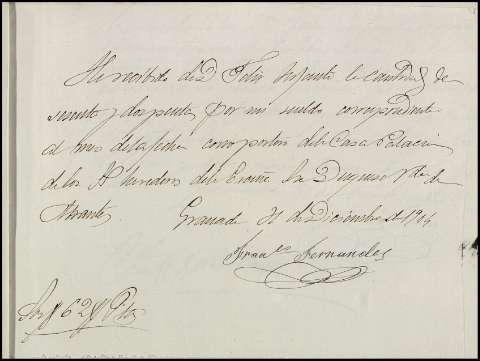 He recibido de D. Felix Infante la cantidad de
sesenta y dos pesetas por mi sueldo correspondiente
al mes de la fecha como portero de la Casa Palacio
de los Srs herederos de la Exma Sra Duquesa Vda de
Abrantes
Granada 31 de Diciembre de 1904
Franco Fernandes
Son # 62 # Pts